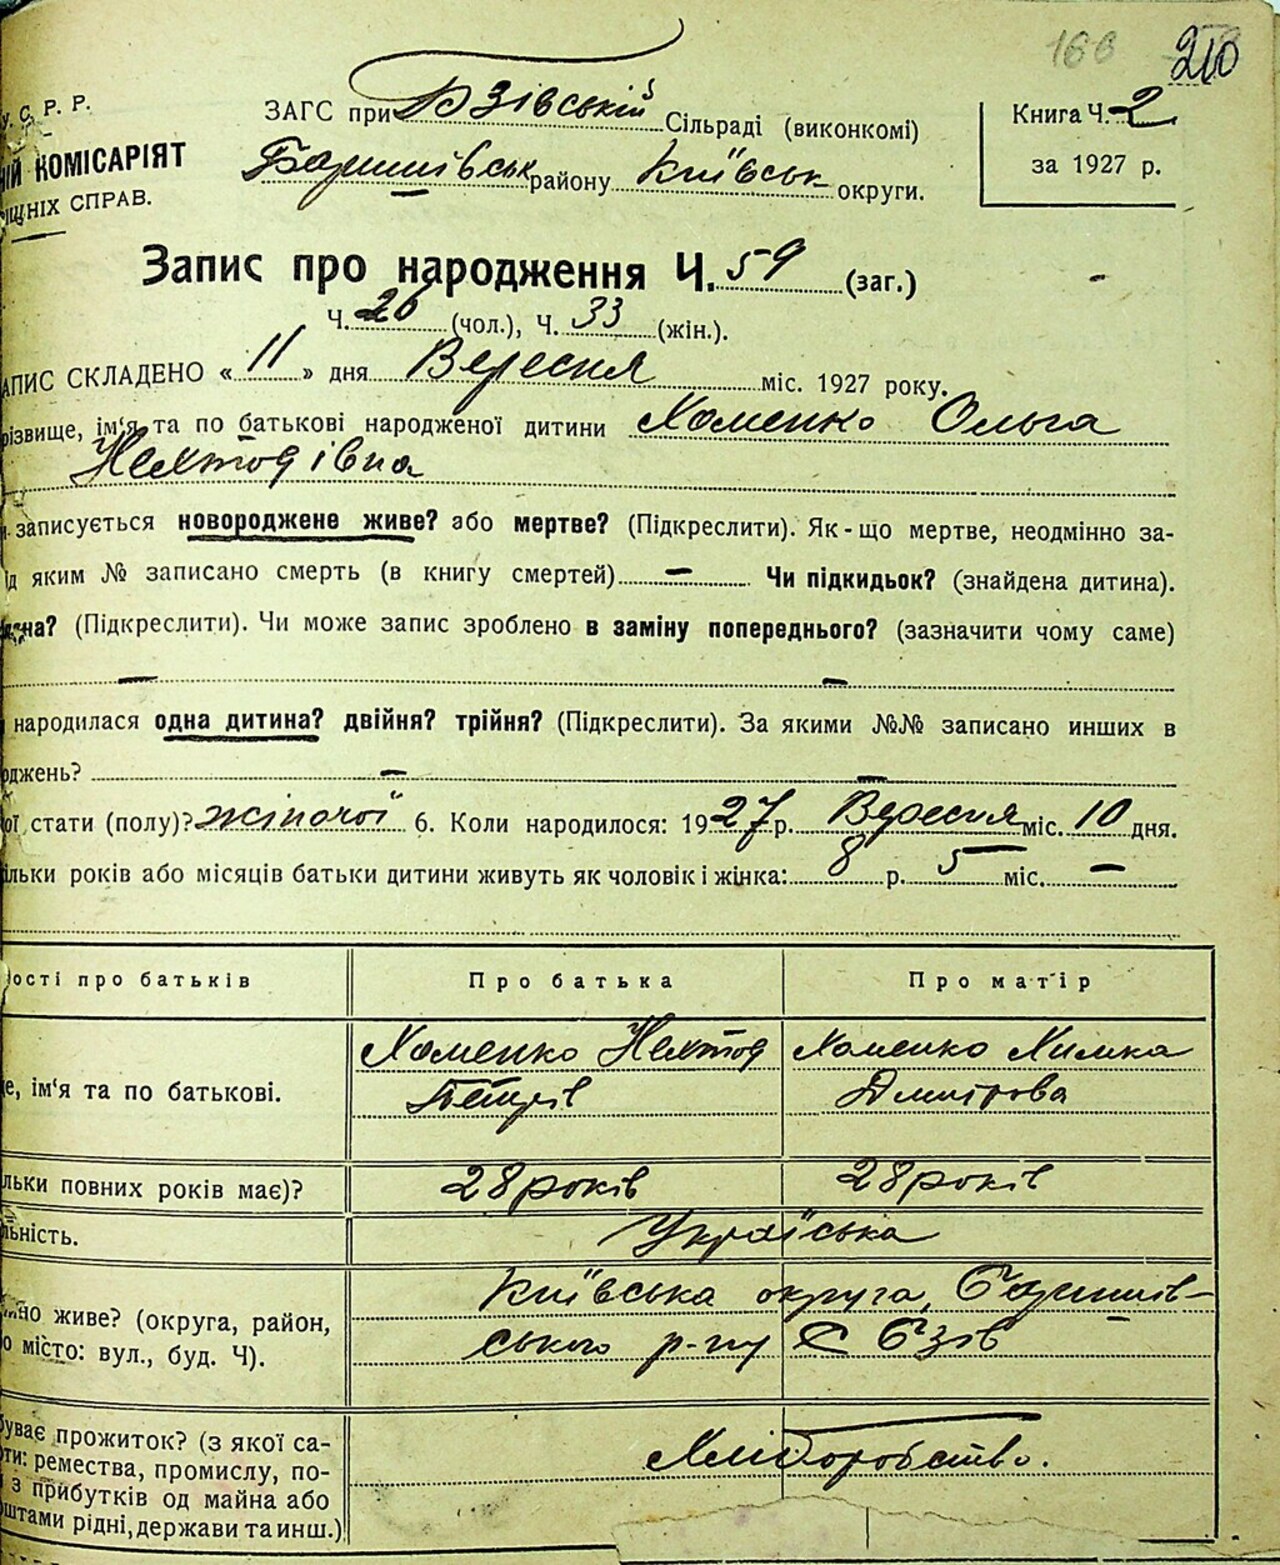 166 210
У. С. Р. Р.
ЗАГС при Бзівській Сільраді (виконкомі)
Книга Ч. 2
ІЙ КОМІСАРІЯТ
Баришівськ району Київськ округи.
за 1927 р.
ІШНІХ СПРАВ.
Запис про народження Ч. 59 (заг.)
Ч. 26 (чол.), Ч. 33 (жін.).
АПИС СКЛАДЕНО « 11 » дня Вересня міс. 1927 року.
різвище, ім‘я та по батькові народженої дитини Хоменко Ольга
записується новороджене живе? або мертве? (Підкреслити). Як-що мертве, неодмінно за-
ід яким № записано смерть (в книгу смертей) — Чи підкидьок? (знайдена дитина).
на? (Підкреслити). Чи може запис зроблено в заміну попереднього? (зазначити чому саме)
— —
народилася одна дитина? двійня? трійня? (Підкреслити). За якими №№ записано инших в
оджень? — —
ої стати (полу)? жіночої 6. Коли народилося: 1927 р. Вересня міс. 10 дня.
ільки років або місяців батьки дитини живуть як чоловік і жінка: 8 р. 5 міс. —
ості про батьків Про батька Про матір
Хоменко Хоменко Химка
е, ім‘я та по батькові. Петрів Дмитрова
льки повних років має)? 28 років 28 років
ьність. Українська
но живе? (округа, район, Київська округа, Баришів-
о місто: вул., буд. Ч). ського р-ну С Бзів
буває прожиток? (з якої са-
оти: ремества, промислу, по- Хліборобство.
і з прибутків од майна або
оштами рідні, держави та инш.)